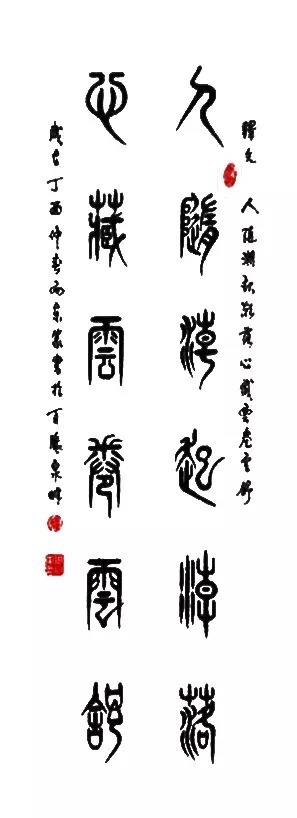 釋文 人隨潮起潮落心藏雲卷雲舒
人隨潮起潮落
心藏雲卷雲舒
歲在丁酉仲春雨東篆書於百泉畔